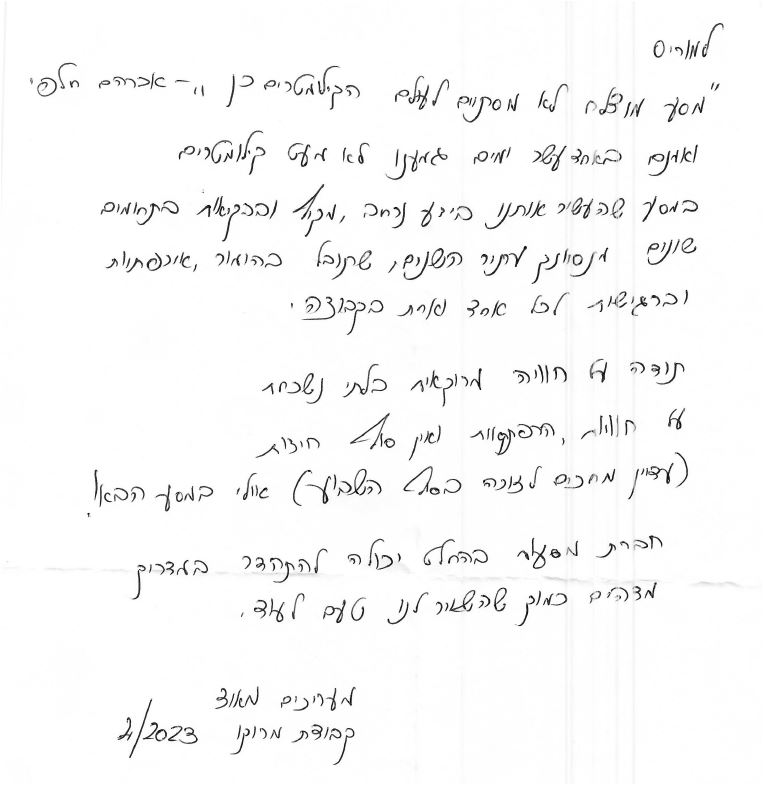 למוריס
"מסע מוצלח לא מסתיים לעולם הקילומטרים כן " – אברהם חלפי
ואמנם באחד עשר ימים גמענו לא מעט קילומטרים
במסע שהעשיר אותנו בידע נרחב, מקיף ובבקיאות בתחומים
שונים מנסיונך עתיר השנים, שתובל בהומור, אכפתיות
וברגישות לכל אחד ואחת בקבוצה.
תודה על חוויה מרוקאית בלתי נשכחת
על חוויות, הרפתקאות ואין סוף חידות
(עדיין מחכים לזוכה בסוף השבוע) אולי במסע הבא!
חברת מסעות בהחלט יכולה להתהדר במדריך
מדהים כמוך שהשאיר לנו טעם לעוד.
מעריכים מאוד
קבוצת מרוקו 2/2023